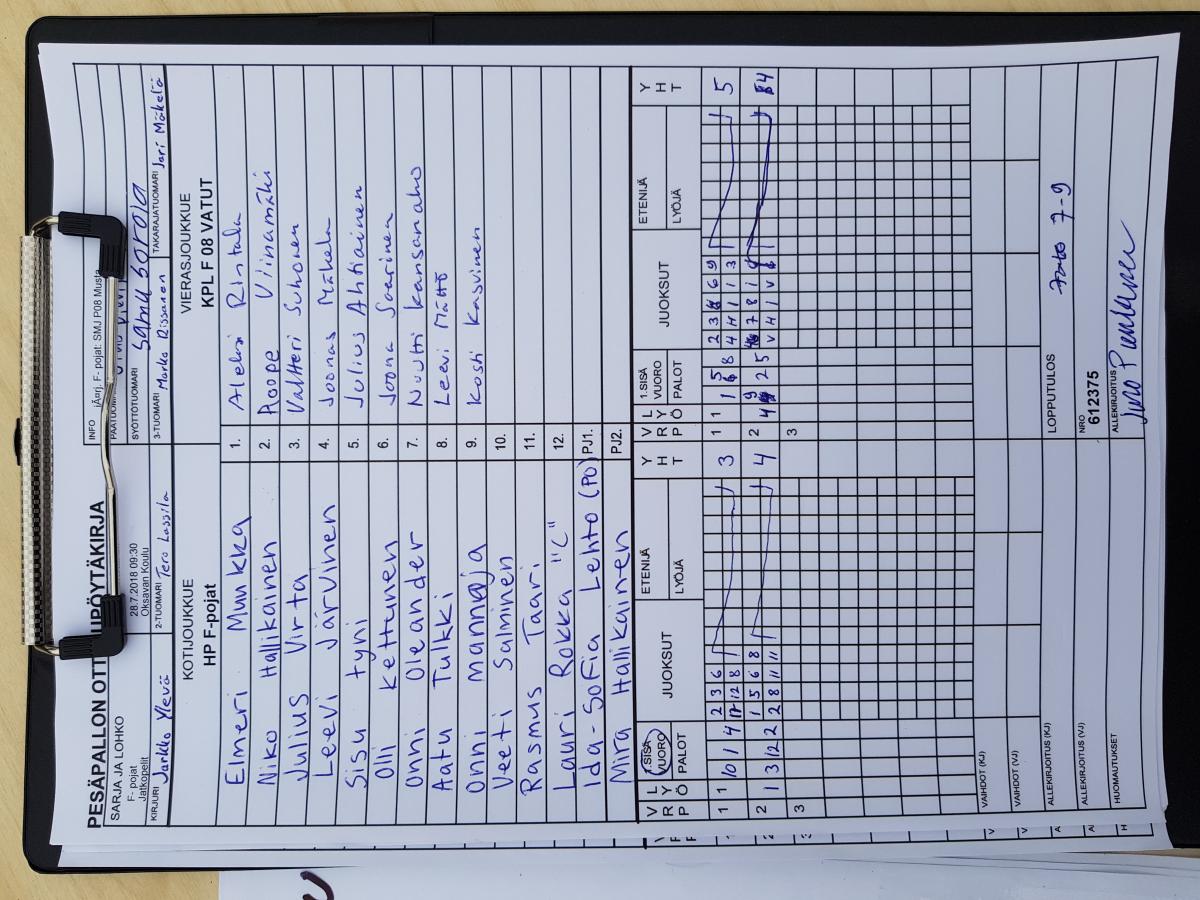 PESÄPALLON OTT UPÖYTÄKIRJA
SARJA JA LOHKO
F- pojat
Jatkopelit
28.7.2018 09:30
Oksavan Koulu
INFO jÄ¤rj, F- pojat: SMJ P08 Musta
SYÖTTÖTUOMARI Samu Sorola
KIRJURI Jarkko Ylevä
2-TUOMARI Tero Lassila
3-TUOMARI Marko Rissanen
TAKARAJATUOMARI Jari Mäkelä
KOTIJOUKKUE
HP F-pojat
VIERASJOUKKUE
KPL F 08 VATUT
Elmeri Muukka 1. Aleksi Rintala
Niko Hallikainen 2. Roope Viinamäki
Julius Virta 3. Valtteri Suhonen
Leevi Järvinen 4. Joonas Mäkelä
Sisu Tyni 5. Julius Ahtiainen
Olli Kettunen 6. Joona Saarinen
Onni Oleander 7. Nuutti Kansanaho
Aatu Tulkki 8. Leevi Mättö
Onni Mannoja 9. Kosti Kasvinen
Veeti Salminen 10.
Rasmus Taari 11.
Lauri Rokka "C" 12.
Ida-Sofia Lehto (PO) PJ1.
Mira Hallikainen PJ2.
V R P L Y Ö 1.SISÄ VUORO PALOT JUOKSUT ETENIJÄ LYÖJÄ Y H T
V R P L Y Ö 1.SISÄ VUORO PALOT JUOKSUT ETENIJÄ LYÖJÄ Y H T
1 1 10 1 4 2 3 6 12 8 3
1 1 1 5 8 2 3 6 9 4 4 1 1 3 5
2 1 3 12 2 1 5 6 8 2 8 11 11 4
2 4 9 2 5 7 8 1 4 1 4
3
3
VAIHDOT (KJ)
VAIHDOT (VJ)
ALLEKIRJOITUS (KJ)
LOPPUTULOS 7-9
ALLEKIRJOITUS (VJ)
NRO
612375
HUOMAUTUKSET
ALLEKIRJOITUS